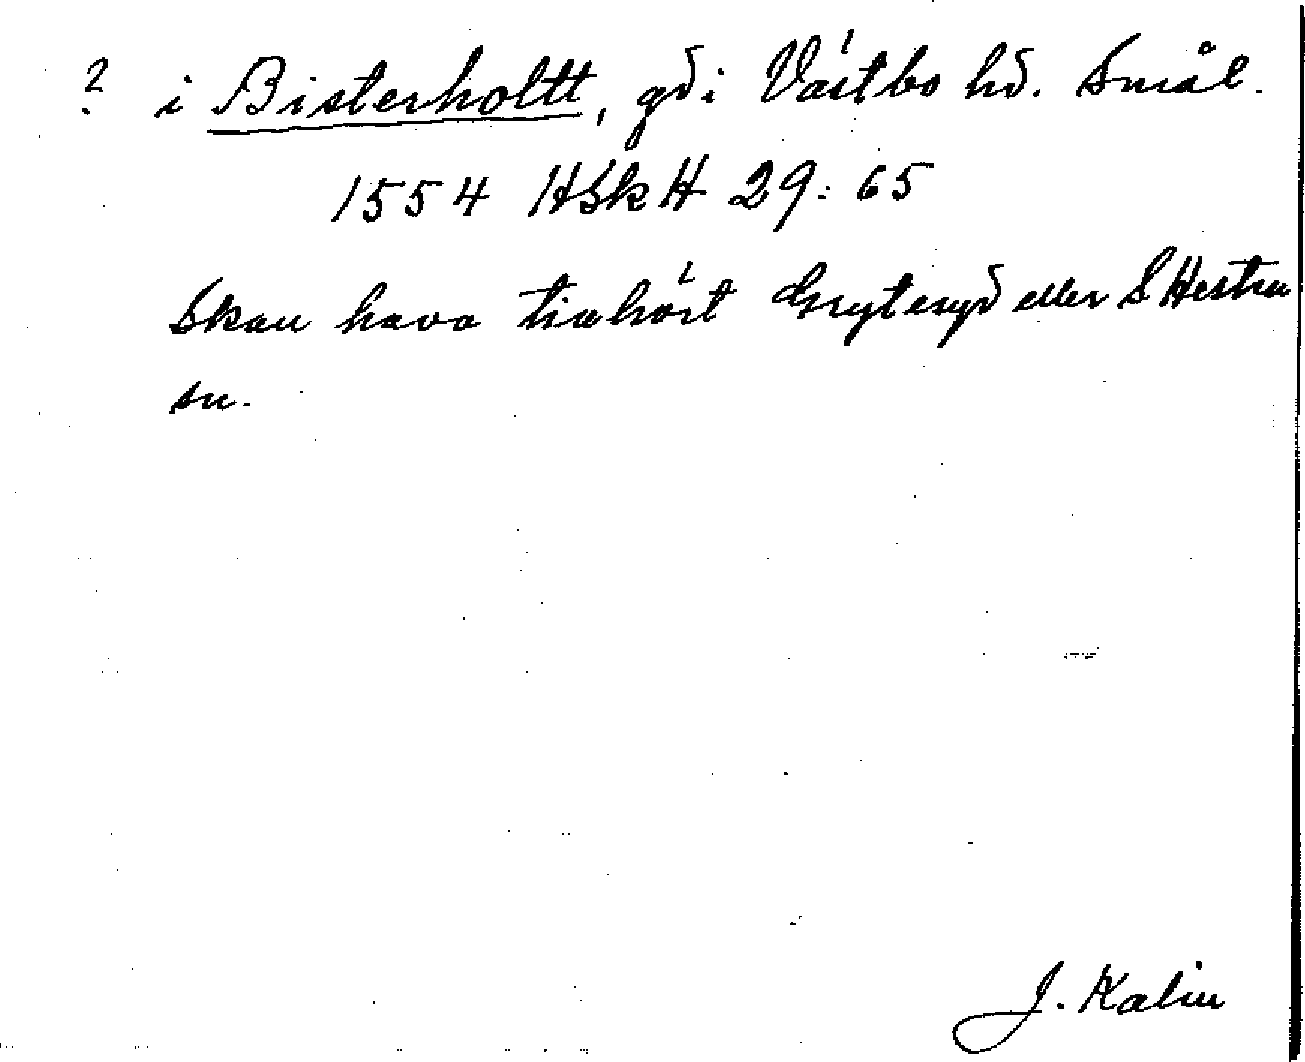 ? i Bisterholtt, gd i Västbo hd. Smål.
1554 HSkH 29: 65
Skall hava tillhört Gryteryd eller S Hestra
sn.
J. Kalin